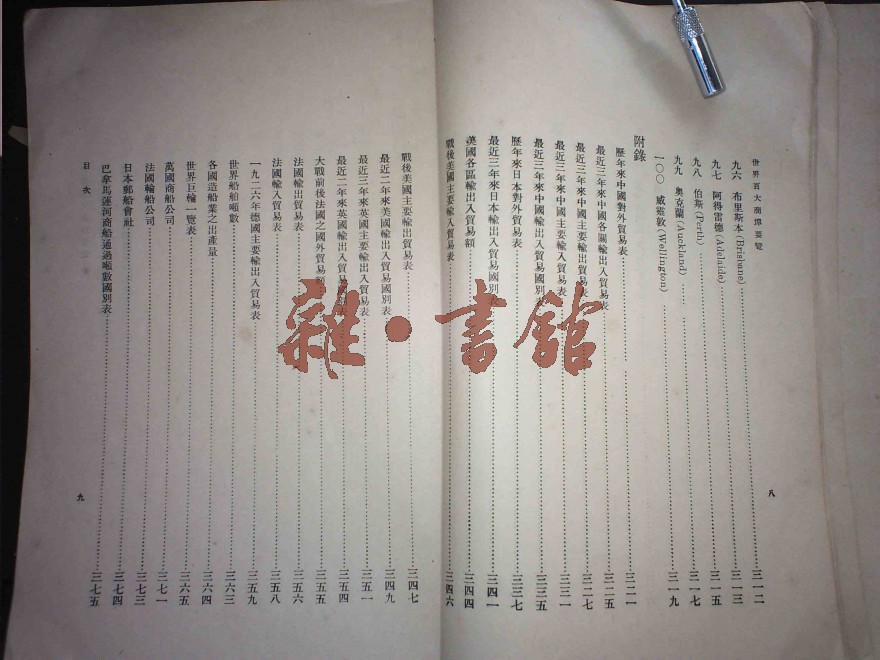 世界百大商埠要覽
九六 布里斯本(Brisbane)……三一二
九七 阿得雷德(Adelaide)……三一三
九八 伯斯(Perth)……三一五
九九 奧克蘭(Auckland)……三一七
一〇〇 威靈敦(Wellington)……三一九
附錄
歷年來中國對外貿易表……三二一
最近三年來中國各關輸出入貿易表……三二五
最近三年來中國主要輸出貿易表……三二七
最近三年來中國主要輸入貿易表……三三一
最近三年來中國輸出入貿易國別表……三三五
歷年來日本對外貿易表……三三七
最近三年來日本輸出入貿易國別表……三四一
英國各區輸出入貿易額……三四四
戰後美國主要輸入貿易表……三四六
八
戰後美國主要輸出貿易表……三四七
最近二年來美國輸出入貿易國別表……三四九
最近三年來英國主要輸出入貿易表……三五一
最近二年來英國輸出入貿易國別表……三五四
大戰前後法國之國外貿易額……三五五
法國輸出貿易表……三五六
法國輸入貿易表……三五八
一九二六年德國主要輸出入貿易表……三五九
世界船舶噸數……三六三
各國造船業之出產量……三六四
世界巨輪一覽表……三六五
萬國商船公司……三七一
法國輪船公司……三七三
日本郵船會社……三七四
巴拿馬運河商船通過噸數國別表……三七五
目次
九
雜·書館